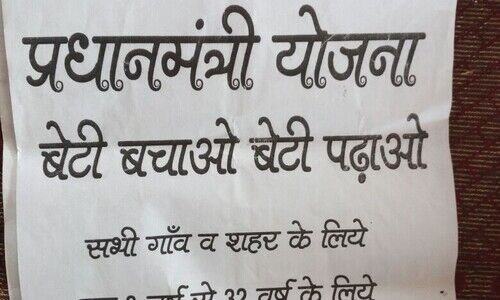 प्रधानमंत्री योजना
बेटी बचाओ बेटी पढ़ाओ
सभी गाँव व शहर के लिये
वर्ष से 32 वर्ष के लिये